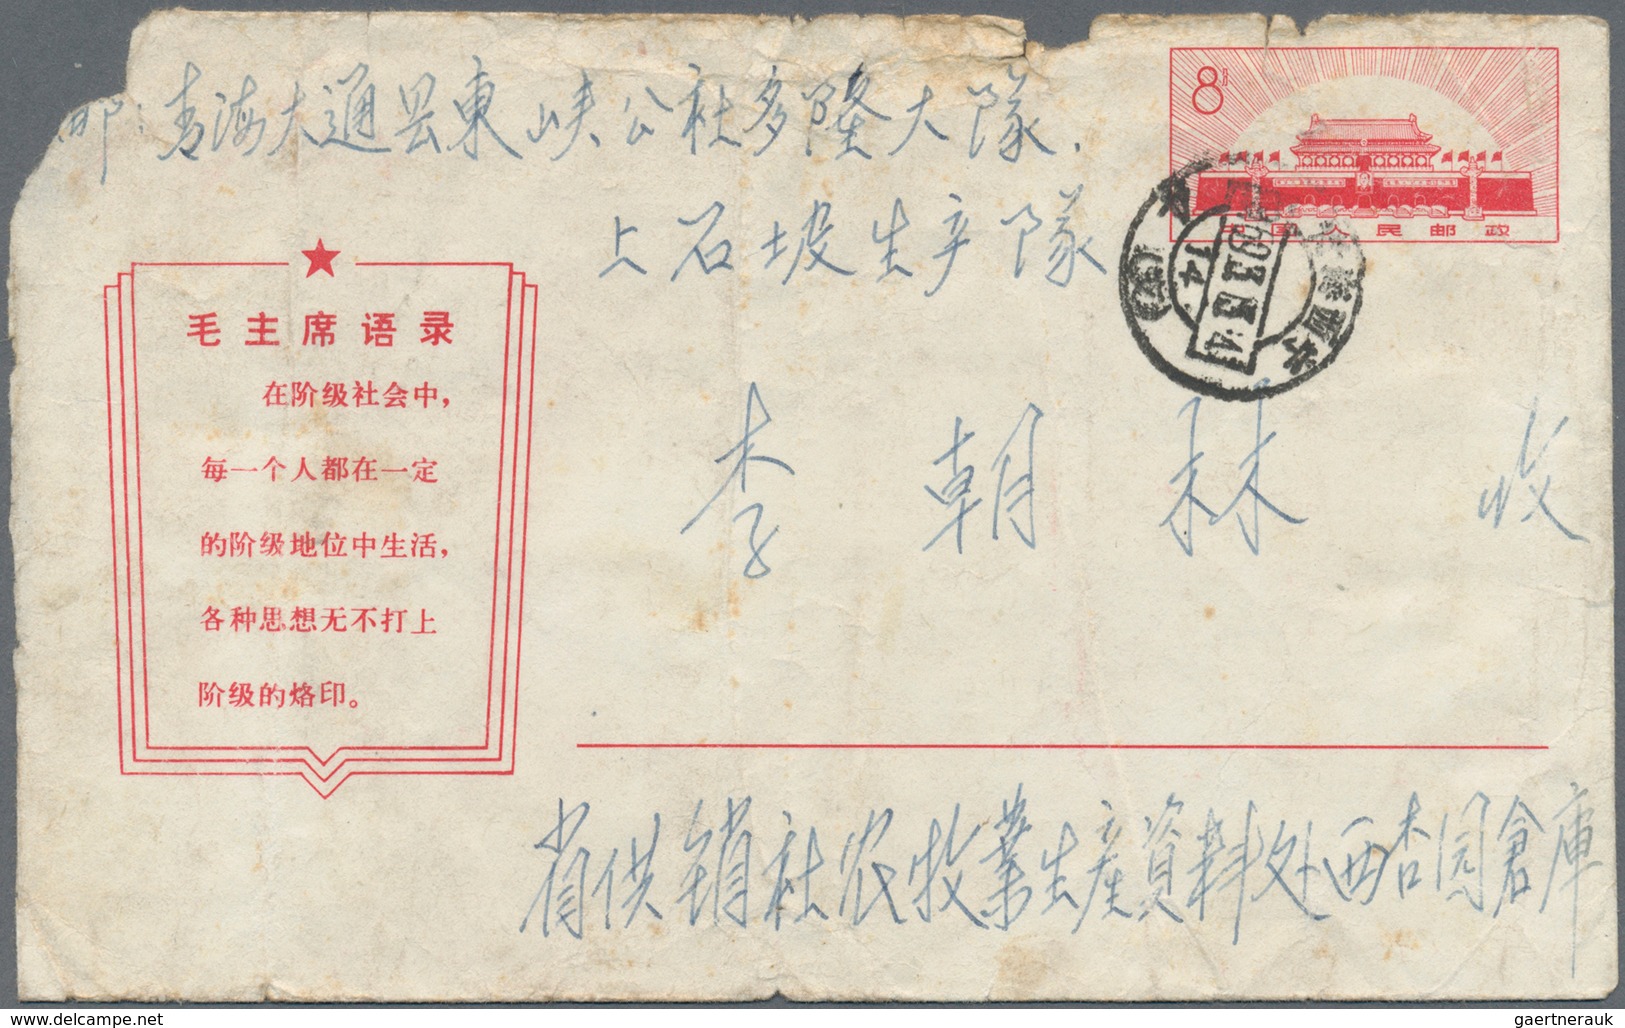 邮:青海大通县東峡公社多隆大隊.
上石坡生产隊
8分
中国人民邮政
毛主席语录
在阶级社会中,
每一个人都在一定
的阶级地位中生活,
各种思想无不打上
阶级的烙印。
李朝林 收
14
省供销社农牧業生産資料处西杏园倉庫
delcampe.net
gaertnerauk